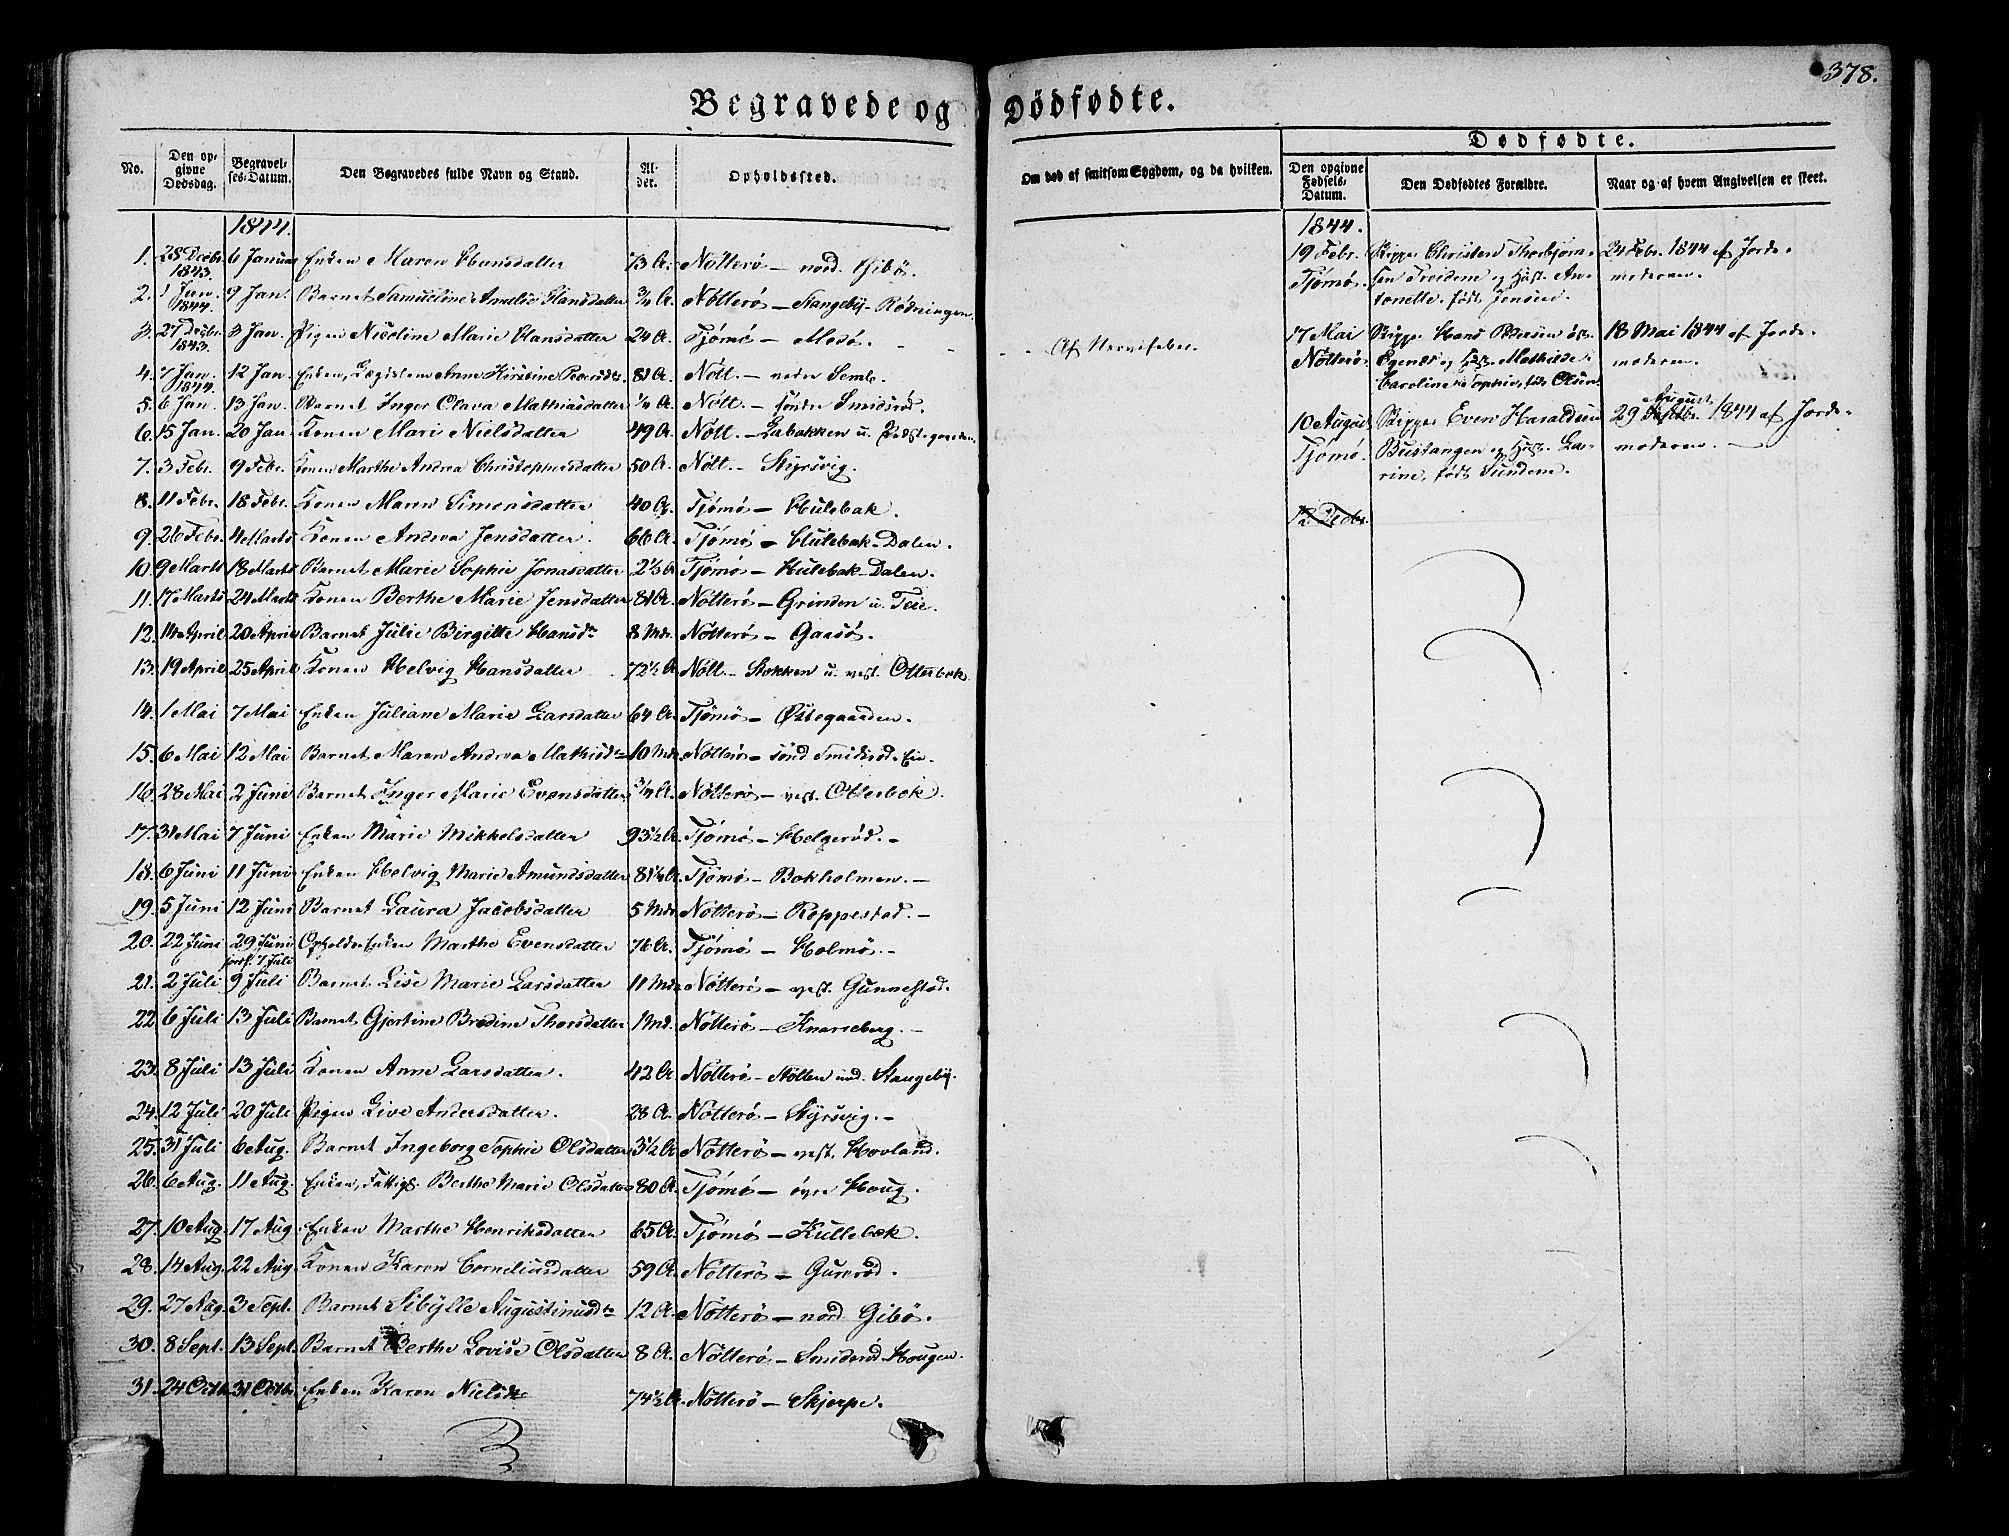 378.
Begravede og Dødfødte.
Dødfødte.
No. Den opgivne Dødsdag. Begravelses-Datum. Den Begravedes fulde Navn og Stand. Alder. Opholdssted. Om død af smitsom Sygdom, og da hvilken. Den opgivne Fødsels-Datum. Den Dødfødtes Forældre. Naar og af hvem Angivelsen er skeet.
1844.
1. 28 Decbr. 1843. 6 Januar Enken Maren Hansdatter 73 A. Nötterö – nord. Gibö.
2. 1 Jan. 1844. 9 Jan. Barnet Samueline Amelie Hansdatter 3/4 A. Nötterö – Stangeby-Rödningen.
3. 27 Decbr. 1843. 3 Jan. Pigen Nicoline Marie Hansdatter 24 A. Tjömö – Mosö. - - Af Nervefeber.
4. 7 Jan. 1844. 12 Jan. Enken, Lægdslem Anne Kirstine Pedersdtr 81 A. Nött. – nedre Semb.
5. 6 Jan. 13 Jan. Barnet Inger Olava Mathiasdatter 1/4 A. Nött. – söndre Smidsröd.
6. 15 Jan. 20 Jan. Konen Mari Nielsdatter 49 A. Nött. – Labakken u.
7. 3 Febr. 9 Febr. Konen Marthe Andrea Christophersdatter 50 A. Nött. – Styrsvig.
8. 11 Febr. 18 Febr. Konen Maren Simensdatter 40 A. Tjömö – Hulebak.
9. 26 Febr. 4 Marts Konen Andrea Jensdatter. 66 A. Tjömö – Hulebak-Dalen.
10. 9 Marts 18 Marts Barnet Marie Sophie Jonasdatter 2 1/2 A Tjömö – Hulebak-Dalen.
11. 17 Marts 24 Marts Konen Berthe Marie Jensdatter 81 A. Nötterö – Grinden u. Teie.
12. 14 April 20 April Barnet Julie Birgitte Hansdtr 8 Mdr. Nötterö – Gaasö.
13. 19 April 25 April Konen Helvig Hansdatter 72 1/2 A. Nött. – Stokken u. vest. Otterbæk.
14. 1 Mai 7 Mai Enken Juliane Marie Larsdatter 64 A. Tjömö – Østegaarden.
15. 6 Mai 12 Mai Barnet Maren Andrea Mathisdtr 10 Mdr. Nötterö – sönd Smidsröd-Eie.
16. 28 Mai 2 Juni Barnet Inger Marie Evensdatter 3/4 A. Nötterö – vest. Otterbæk.
17. 31 Mai 7 Juni Enken Marie Mikkelsdatter 93 1/2 A. Tjömö – Helgeröd. –
18. 6 Juni 11 Juni Enken Helvig Marie Amundsdatter 81 1/2 A. Tjömö – Bokholmen. –
19. 5 Juni 12 Juni Barnet Laura Jacobsdatter 5 Mdr. Nötterö – Roppestad. –
20. 22 Juni 29 Juni 7 Juli Enken Marthe Evensdatter 76 A. Tjömö – Holmö. –
21. 2 Juli 9 Juli Barnet Lise Marie Larsdatter 11 Mdr Nötterö – vest. Gunnestad.
22 6 Juli 13 Juli Barnet Gjertine Bredine Thorsdatter 1 Md. Nötterö – Knarreberg. –
23. 8 Juli 13 Juli Konen Anne Larsdatter. 42 A. Nötterö – Stölten und. Stangeby.
24. 12 Juli 20 Juli Pigen Live Andersdatter. 28 A. Nötterö – Styrsvig. –
25. 31 Juli 6 Aug. Barnet Ingeborg Sophie Olsdatter 3 1/2 A Nötterö – vest. Hovland.
26. 6 Aug. 11 Aug. Enken, Fattigl. Berthe Marie Olsdatter 80 A. Tjömö – övre Houg.
27. 10 Aug. 17 Aug. Enken Marthe Henriksdatter 65 A. Tjömö – Kullebæk.
28. 14 Aug. 22 Aug. Konen Karen Corneliusdatter 59 A. Nötterö – Guseröd.
29. 27 Aug. 3 Sept. Barnet Sibylle Augustinusdtr 12 A. Nötterö – nord Gibö.
30. 8 Sept. 13 Sept. Barnet Berthe Lovise Olsdatter 8 A. Nötterö – Smidsröd-Hougen.
31. 24 Octb. 31 Octbr. Enken Karen Nielsdtr 74 1/2 A. Nötterö – Skjerpe.
1844.
19 Febr. Tjömö. Skipper Christen Thorbjörnsen og Hust. Antonette, födt Jensen. 24 Febr. 1844 af Jordemoderen.
17 Mai Nötterö. Skipper Hans og Hust. Mathilde Caroline Sophie, födt Olsen. 18 Mai 1844 af Jordemoderen.
10 August Tjömö. Skipper Even Haraldsen Bustangen og Hust. Larine, födt Sundene. 29 August 1844 af Jordemoderen. –
12 Decbr.